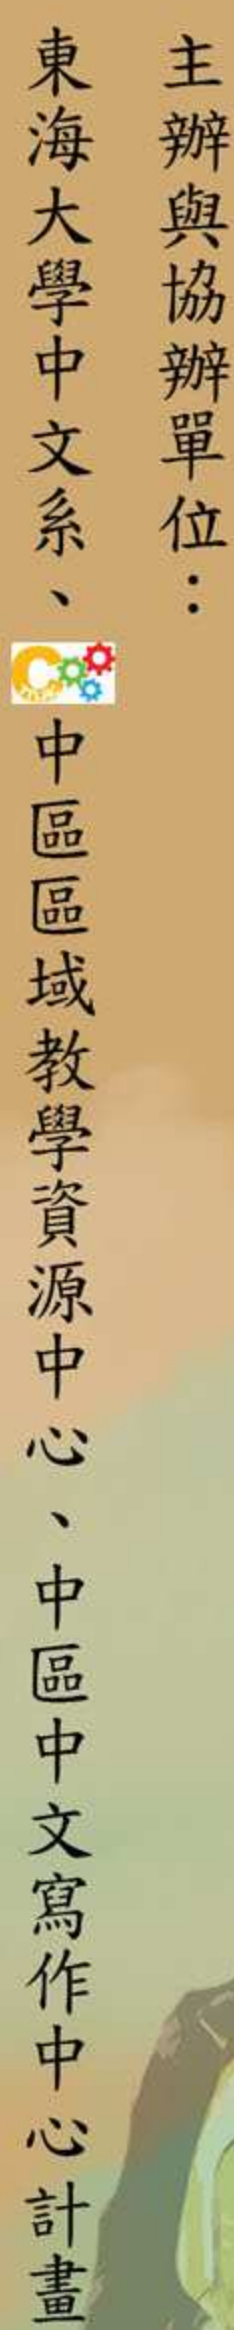 主辦與協辦單位：
東海大學中文系、中區區域教學資源中心、中區中文寫作中心計畫